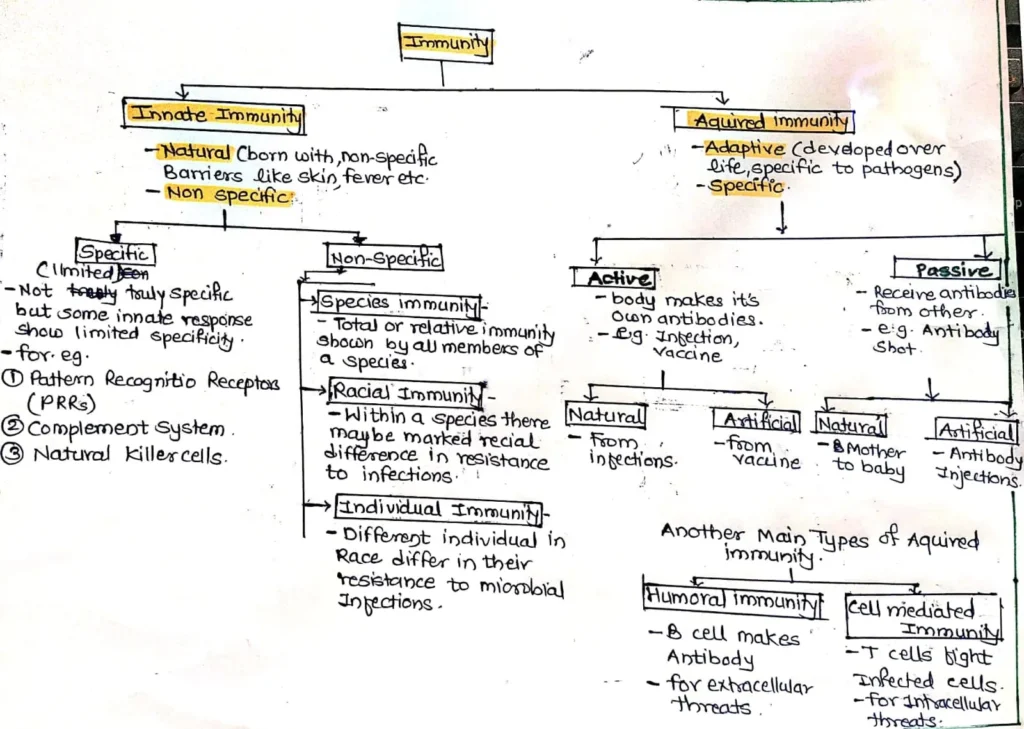 Immunity
Innate Immunity
- Natural (born with, non-specific
Barriers like skin, fever etc.
- Non specific.
Specific
(limited)
- Not truly specific
but some innate response
show limited specificity.
- for. eg.
① Pattern Recognitio Receptors
(PRRs)
② Complement System.
③ Natural Killer cells.
Non-Specific
Species immunity -
- Total or relative immunity
shown by all members of
a species.
Racial Immunity -
- Within a species there
maybe marked recial
difference in resistance
to infections.
Individual Immunity -
- Different individual in
Race differ in their
resistance to microbial
Infections.
Aquired immunity
- Adaptive (developed over
life, specific to pathogens)
- Specific.
Active
- body makes it's
own antibodies.
- E.g. Infection,
vaccine
Natural
- from
infections.
Artificial
- from
vaccine
Passive
- Receive antibodies
from other.
- e.g. Antibody
shot.
Natural
- Mother
to baby
Artificial
- Antibody
Injections.
Another Main Types of Aquired
immunity.
Humoral immunity
- B cell makes
Antibody
- for extracellular
threats.
Cell mediated
Immunity
- T cells fight
Infected cells.
- for Intracellular
threats.